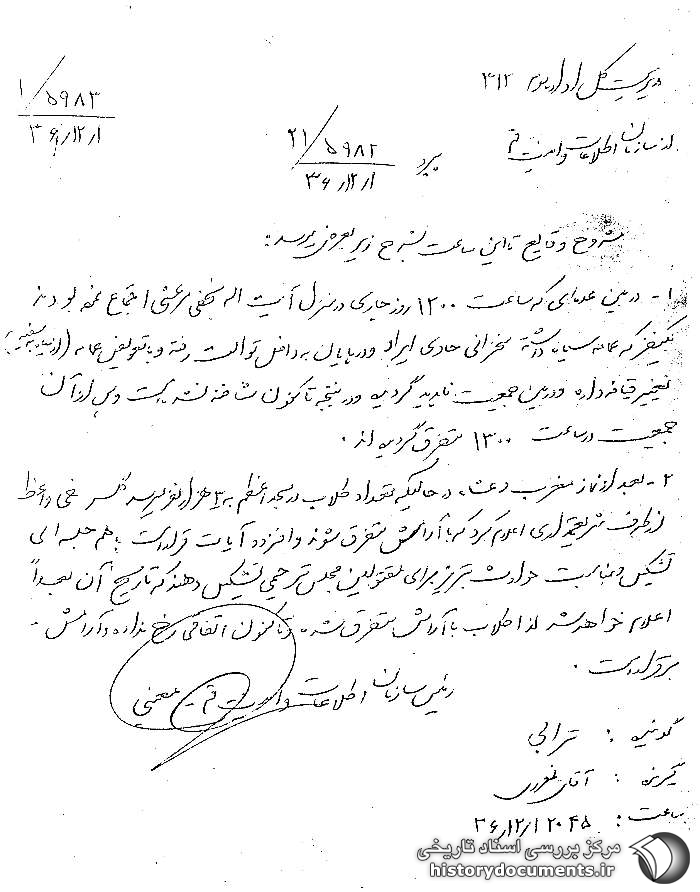 مدیریت کل اداره سوم ۳۱۲
۱/۵۹۸۳
۳۶/۱۲/۱
از سازمان اطلاعات و امنیت قم
۲۱/۵۹۸۲
۳۶/۱۲/۱
مشروح وقایع تا این ساعت بشرح زیر بعرض میرسد:
۱- در بین عده‌ای که ساعت ۱۲۰۰ روز جاری در منزل آیت اله نجفی مرعشی اجتماع نموده بودند
یکنفر که عمامه سیاه داشته سخنرانی حادی ایراد و در پایان به داخل توالت رفته و با تعویض عمامه (از سیاه بسفید)
تغییر قیافه داده و در بین جمعیت ناپدید گردیده و در نتیجه تاکنون شناخته نشده است و پس از آن
جمعیت در ساعت ۱۳۰۰ متفرق گردیده اند.
۲- بعد از نماز مغرب و عشاء در حالیکه تعداد طلاب در مسجد اعظم به ۳ هزار نفر میرسد واعظ
از طرف شریعتمداری اعلام کرد که با آرامش متفرق شوند و افزوده آیات قرار است با هم جلسه ای
تشکیل و بمناسبت حوادث تبریز برای مقتولین مجلس ترحیمی تشکیل دهند که تاریخ آن بعداً
اعلام خواهد شد لذا طلاب با آرامش متفرق شده و تاکنون اتفاقی رخ نداده و آرامش
برقرار است.
رئیس سازمان اطلاعات و امنیت قم - معینی
گوینده : ترابی
گیرنده : آقای
ساعت: ۲۰۴۵ ۳۶/۱۲/۱
مرکز بررسی اسناد تاریخی
historydocuments.ir